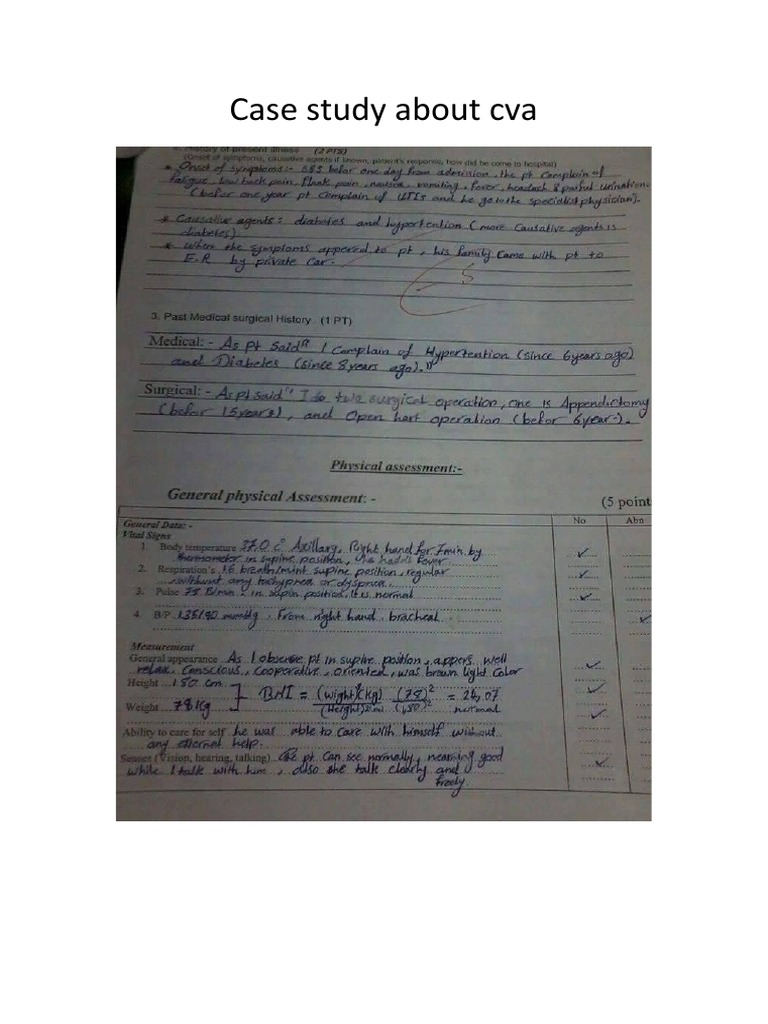 Case study about cva
History of present illness (2 PTS)
(Onset of symptoms, causative agents if known, patient's response, how did he come to hospital)
* Onset of symptoms:- S&S befor one day from admission, the pt complain of
Fatigue, low back pain, Flank pain, nausea, vomiting, Fever, headach & painful urination.
(befor one year pt complain of UTIs and he go to the specialist physician).
* Causative agents: diabetes and hypertention (more causative agents is
diabetes)
* When the symptoms appered to pt, his family came with pt to
E.R by private car.
5
3. Past Medical surgical History . (1 PT)
Medical: - As pt said" I complain of Hypertention (since 6years ago)
and Diabetes (since 8 years ago)."
Surgical: - As pt said" I do two surgical operation, one is Appendictomy
(befor 15years), and Open hart operation (befor 6year).
Physical assessment:-
General physical Assessment: -
(5 point
No Abn
General Data: -
Vital Signs
1. Body temperature 37.0 c° Axillary, Right hand for 7min by
thermometer in supine position, Fever.
2. Respiration's 16 breath/mint supine position, regular
withount any tachypnea or dyspnea.
3. Pulse 75 B/min, in supin position, It is normal
4. B/P 135/90 mmHg, From right hand, bracheal
Measurement
General appearance As I observe pt in supine position, appers well
relax, conscious, cooperative, oriented, was brown light color
Height 180 cm
BMI = (wight)(kg) (78)² = 24,07
(Height)² (180)² normal
Weight 78 Kg
Ability to care for self he was able to care with himself without
any external help.
Senses (Vision, hearing, talking) the pt can see normally, hearing good
while I talk with hime, also she talk clearly and
freely